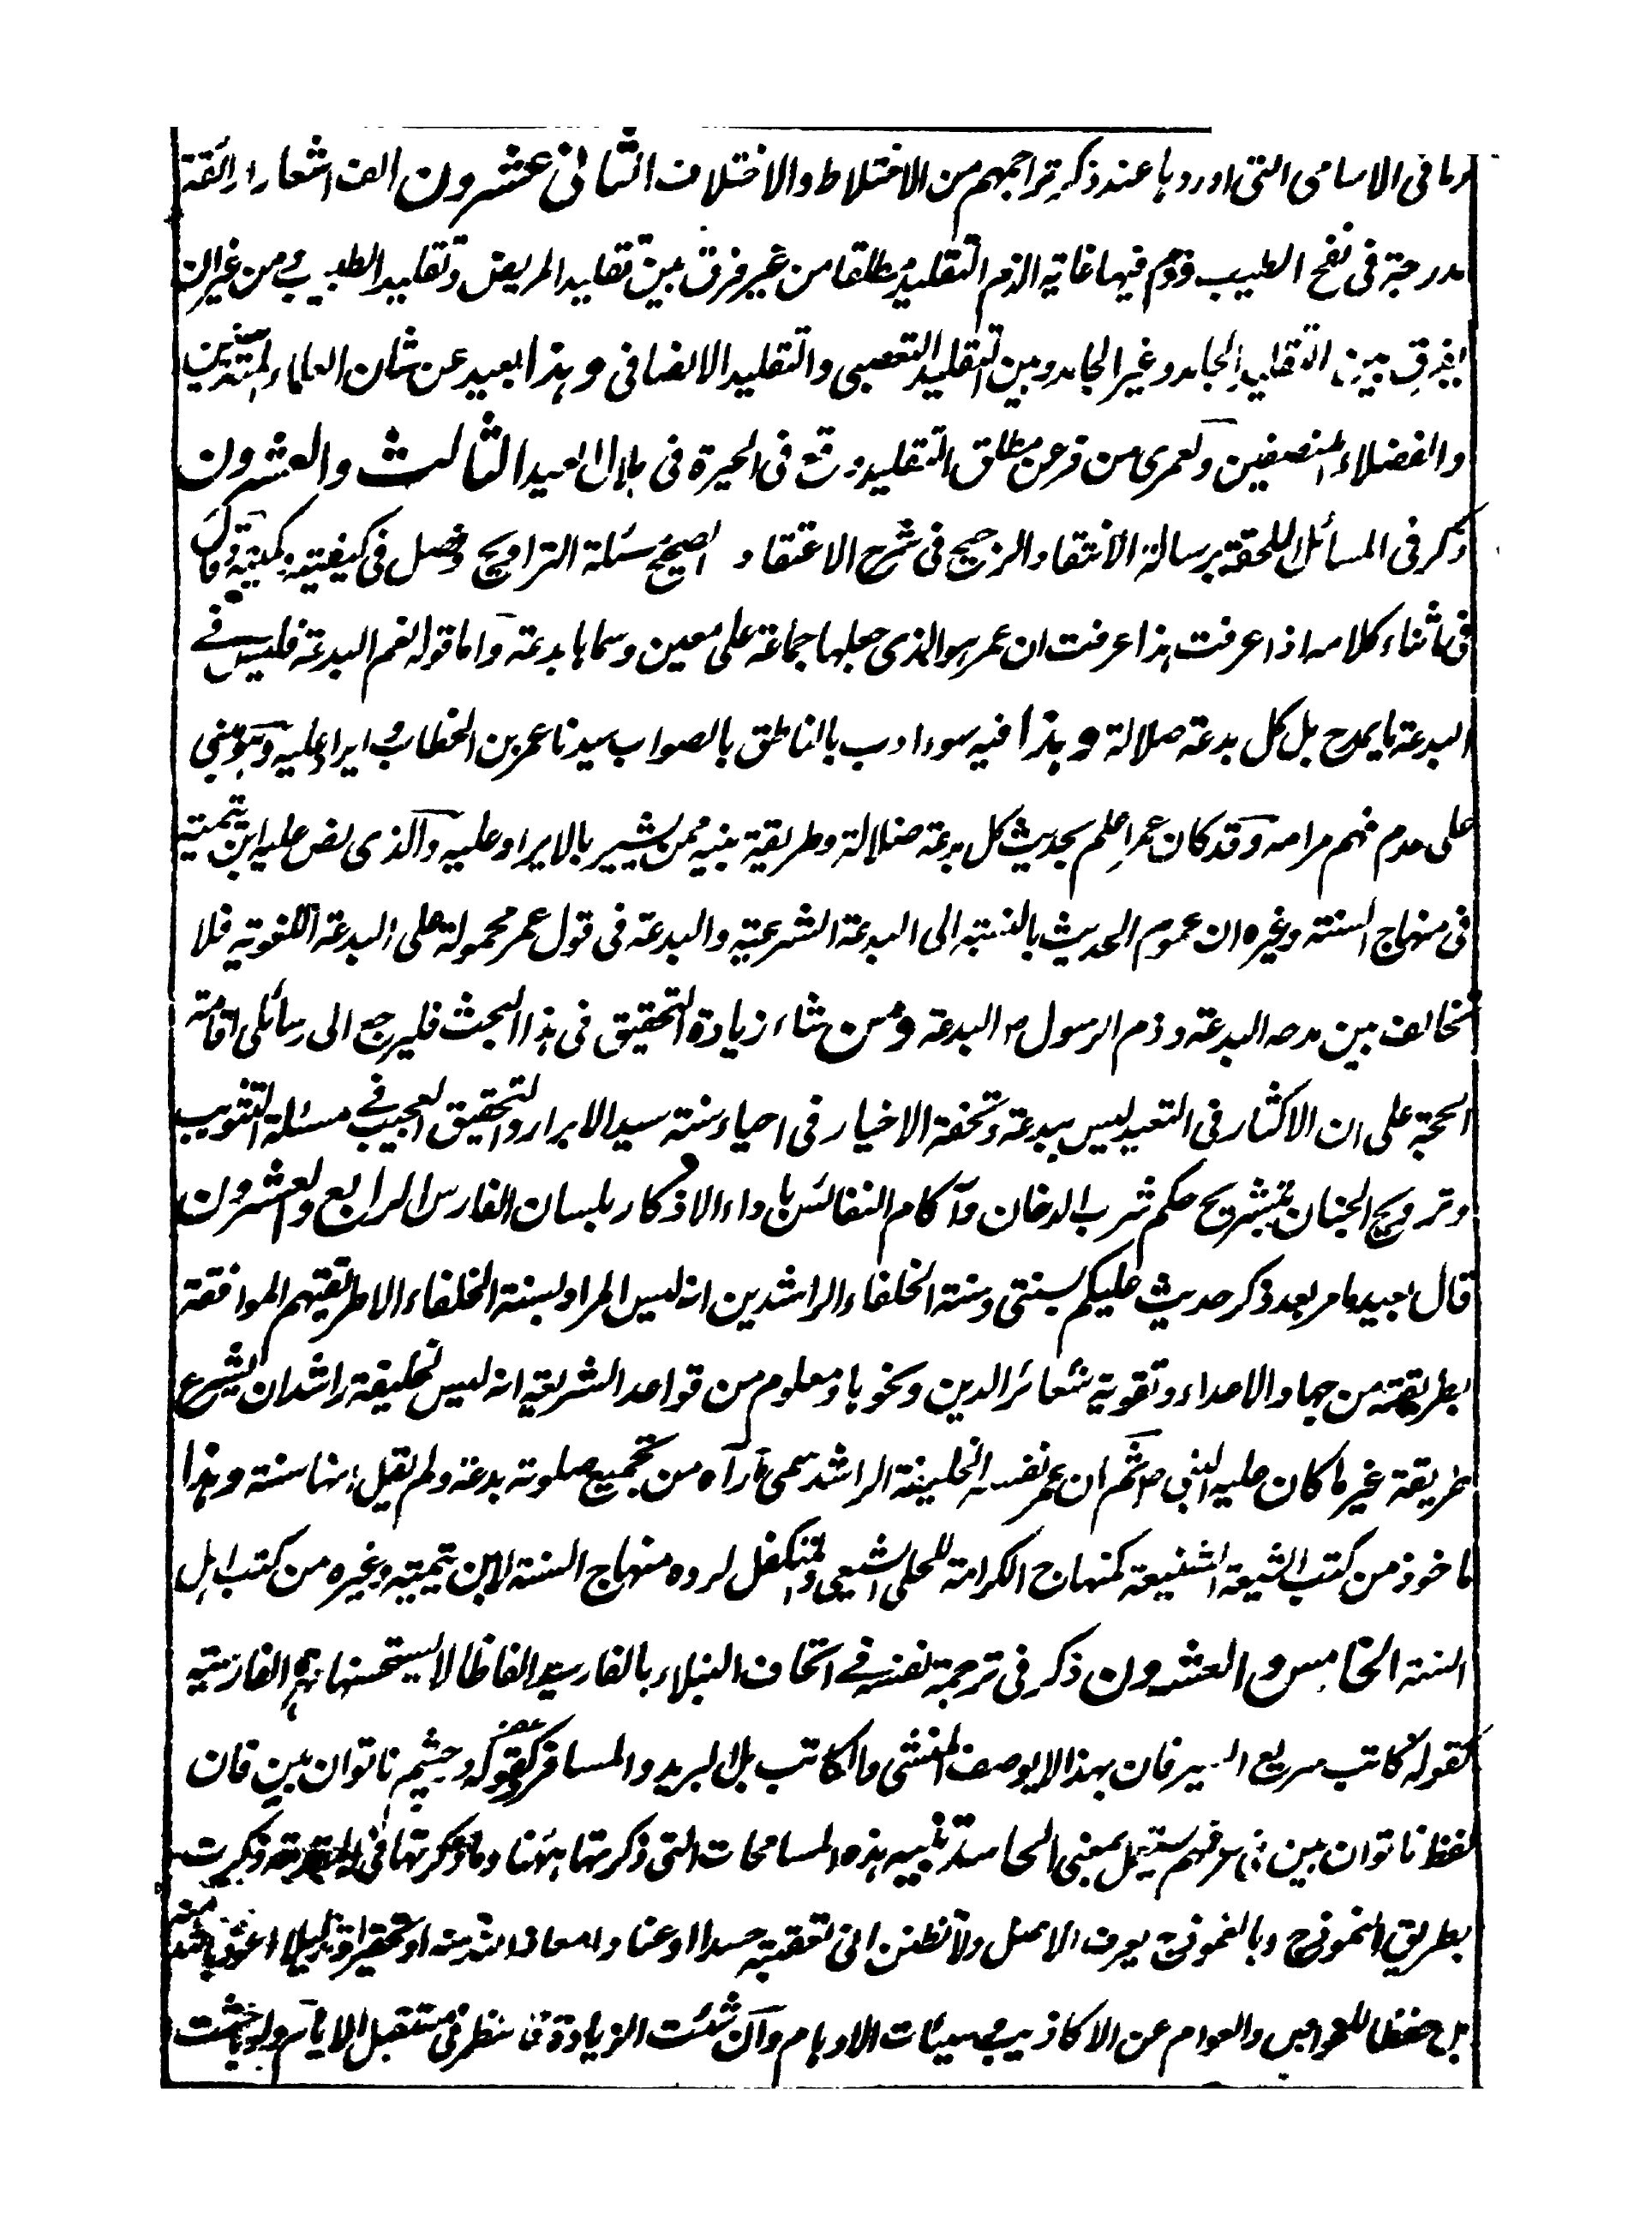 ما فى الاسامى التى اوردها عند ذكر تراجمهم من الاختلاط والاختلاف الثانى عشرون الف اشعارا رائقة
مدرجة فى نفح الطيب وذم فيها غاية الذم التقليد مطلقا من غير فرق بين تقليد المريض وتقليد الطبيب ومن غير ان
يفرق بين التقليد الجامد وغير الجامد وبين التقليد التعصبى والتقليد الانصافى وهذا بعيد عن شان العلماء المتدينين
والفضلاء المنصفين ولعمرى من فر عن مطلق التقليد وقع فى الحيرة فى بلال العيد الثالث والعشرون
ذكر فى المسائل الملحقة برسالة الانتقاد الرجيح فى شرح الاعتقاد الصحيح مسئلة التراويح وفصل فى كيفيته وكميته وقال
فى اثناء كلامه اذا عرفت هذا عرفت ان عمر هو الذى جعلها جماعة على معين وسماها بدعة واما قوله نعم البدعة فليس فے
البدعة ما يمدح بل كل بدعة ضلالة وهذا فيه سوء ادب بالناطق بالصواب سيدنا عمر بن الخطاب وايراد عليه وهو مبنى
على عدم فهم مرامه وقد كان عمر اعلم بحديث كل بدعة ضلالة وطريقة نبيه ممن يشير بالايراد عليه والذى نص عليه ابن تيمية
فى منهاج السنة وغيره ان عموم الحديث بالنسبة الى البدعة الشرعية والبدعة فى قول عمر محمولة على البدعة اللغوية فلا
تخالف بين مدحه البدعة وذم الرسول صہ البدعة ومن شاء زيادة التحقيق فى هذا البحث فليرجع الى رسائلى اقامة
الحجة على ان الاكثار فى التعبد ليس ببدعة وتحفة الاخيار فى احياء سنة سيد الابرار والتحقيق العجيب فے مسئلة التثويب
وترويح الجنان بتشريح حكم شرب الدخان وآكام النفائس باداء الاذكار بلسان الفارس الرابع والعشرون
قال بعيد ما مر بعد ذكر حديث عليكم بسنتى وسنة الخلفاء الراشدين انه ليس المراد بسنة الخلفاء الا طريقتهم الموافقة
بطريقته من جهاد الاعداء وتقوية شعائر الدين ونحوها ومعلوم من قواعد الشريعة انه ليس لخليفة راشد ان يشرع
طريقة غير ما كان عليه النبى صہ ثم ان عمر نفسه الخليفة الراشد سمى ما رآه من تجميع صلوته بدعة ولم يقل انها سنة وهذا
ماخوذ من كتب الشيعة الشنيعة كمنهاج الكرامة للحلى الشيعى والمتكفل لرده منهاج السنة لابن تيمية وغيره من كتب اهل
السنة الخامس والعشرون ذكر فى ترجمة نفسه فے اتحاف النبلاء بالفارسية الفاظا لا يستحسنها مهرة الفارسية
كقوله كاتب سريع السير فان بهذا لا يوصف المنشى والكاتب بل البريد والمسافر وكقوله فى چشم ناتوان بين فان
لفظ ناتوان بين فى عرفهم يستعمل بمعنى الحاسد تنبيه هذه المسامحات التى ذكرتها ههنا وما ذكرتها فى ذكرت
بطريق النموذج وبالنموذج يعرف الاصل ولا تظنن انى تعقبته حسدا او عنادا معاذ الله منه او تحقيرا وتذليلا اعوذ بالله منه
بل حفظا للخواص والعوام عن الاكاذيب وسيئات الاوهام وان شئت الزيادة فانتظر فى مستقبل الايام ولو باحثت